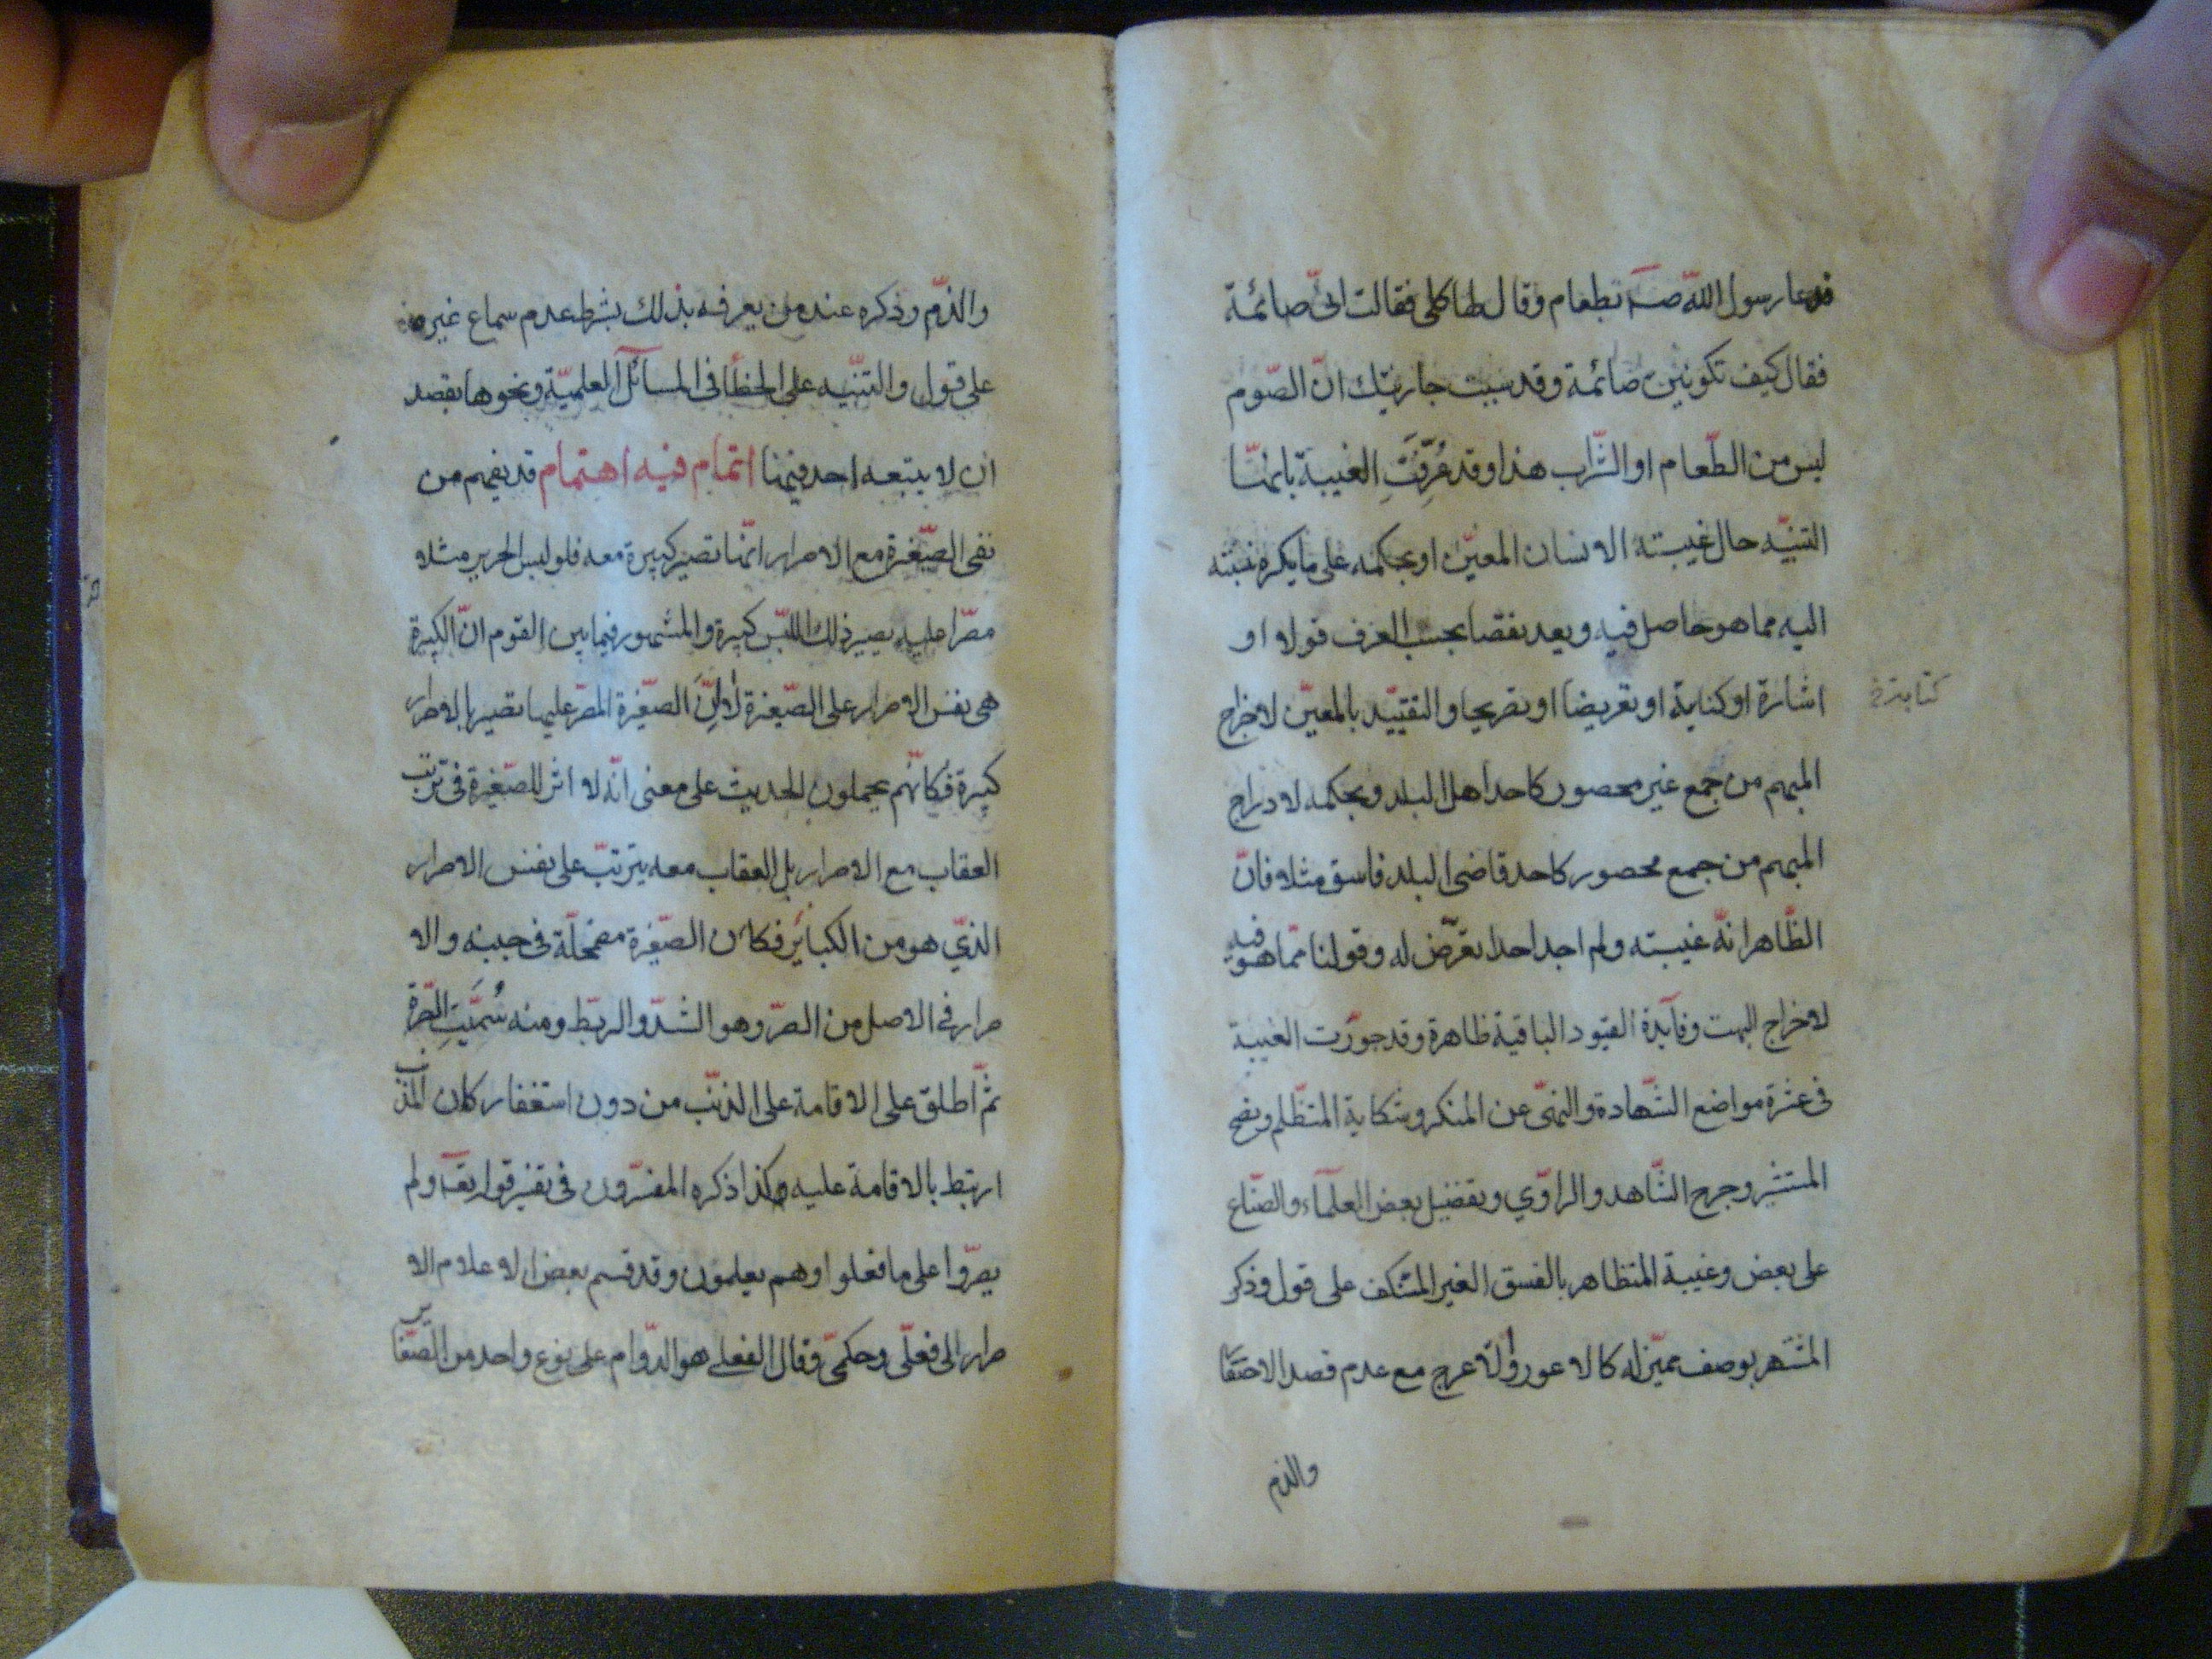 فدعا رسول الله صـ بطعام وقال لها كلى فقالت انّى صائمة
فقال كيف تكونين صائمة وقد سببت جاريتك انّ الصّوم
ليس من الطّعام او الشّراب هذا وقد عُرّفَتِ الغيبة بانها
التنبّيه حال غيبته الانسان المعيّن او بحكمه على ما يكره نسبته
اليه مما هو حاصل فيه ويعد نقصا بحسب العرف قولا او
اشارة او كناية او تعريضا او تصريحا والتقيّيد بالمعيّن لاخراج
كتابة خ
المبهم من جمع غير محصور كاحد اهل البلد وبحكمه لادراج
المبهم من جمع محصور كاحد قاضى البلد فاسق مثلا فانّ
الظّاهر انّه غيبته ولم اجد احدا تعرّض له وقولنا ممّا هو فيه
لاخراج البهت وفآيدة القيود الباقية ظاهرة وقد جوّزت الغيبة
فى عشرة مواضع الشّهادة والنهىّ عن المنكر وشكاية المتظّلم ونصح
المستشير وجرح الشّاهد والراوّي وتفضيل بعض العلمآء والصنّاع
على بعض وغيبة المتظاهر بالفسق الغير المستنكف على قول وذكر
المشتهر بوصف مميّز له كالاعور والاعرج مع عدم قصد الاحتقا
والذم
والذمّ وذكره عند من يعرفه بذلك بشرط عدم سماع غيره
على قول والتنبّيه على الخطأ فى المسآئل العلميّة ونحوها بقصد
ان لا يتبعه احد فيها اتمام فيه اهتمام قد يفهم من
نفى الصّغيرة مع الاصرار انّها تصير كبيرة معه فلو لبس الحرير مثلا
مصّرا عليه يصير ذلك اللبّس كبيرة والمشهور فيما بين القوم انّ الكبيرة
هى نفس الاصرار على الصّغيرة لا انّ الصّغيرة المصرّ عليها تصير بالاصرار
كبيرة فكانّهم يحملون الحديث على معنى انّه لا اثر للصّغيرة فى ترتب
العقاب مع الاصرار بل العقاب معه يترتبّ على نفس الاصرار
الذيّ هو من الكبائر فكان الصّغيرة مضمحلّة فى جنبه والا
صرار فى الاصل من الصرّ وهو الشدّ والربّط ومنه سُمّيَتِ الصّرة
ثمّ اطلق على الاقامة على الذنّب من دون استغفار كان المذنب
ارتبط بالاقامة عليه هكذا ذكره المفسّرون فى تفسير قوله تعـ ولم
يصرّوا على ما فعلوا وهم يعلمون وقد قسم بعض الاعلام الا
صرار الى فعلّى وحكمىّ وقال الفعلى هو الدّوام على نوع واحد من الصّغاير